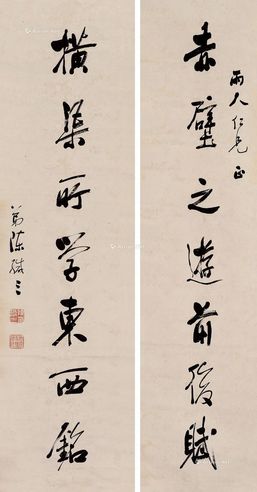 雨人仁兄正
赤壁之游前後賦
橫渠所學東西銘
弟陳